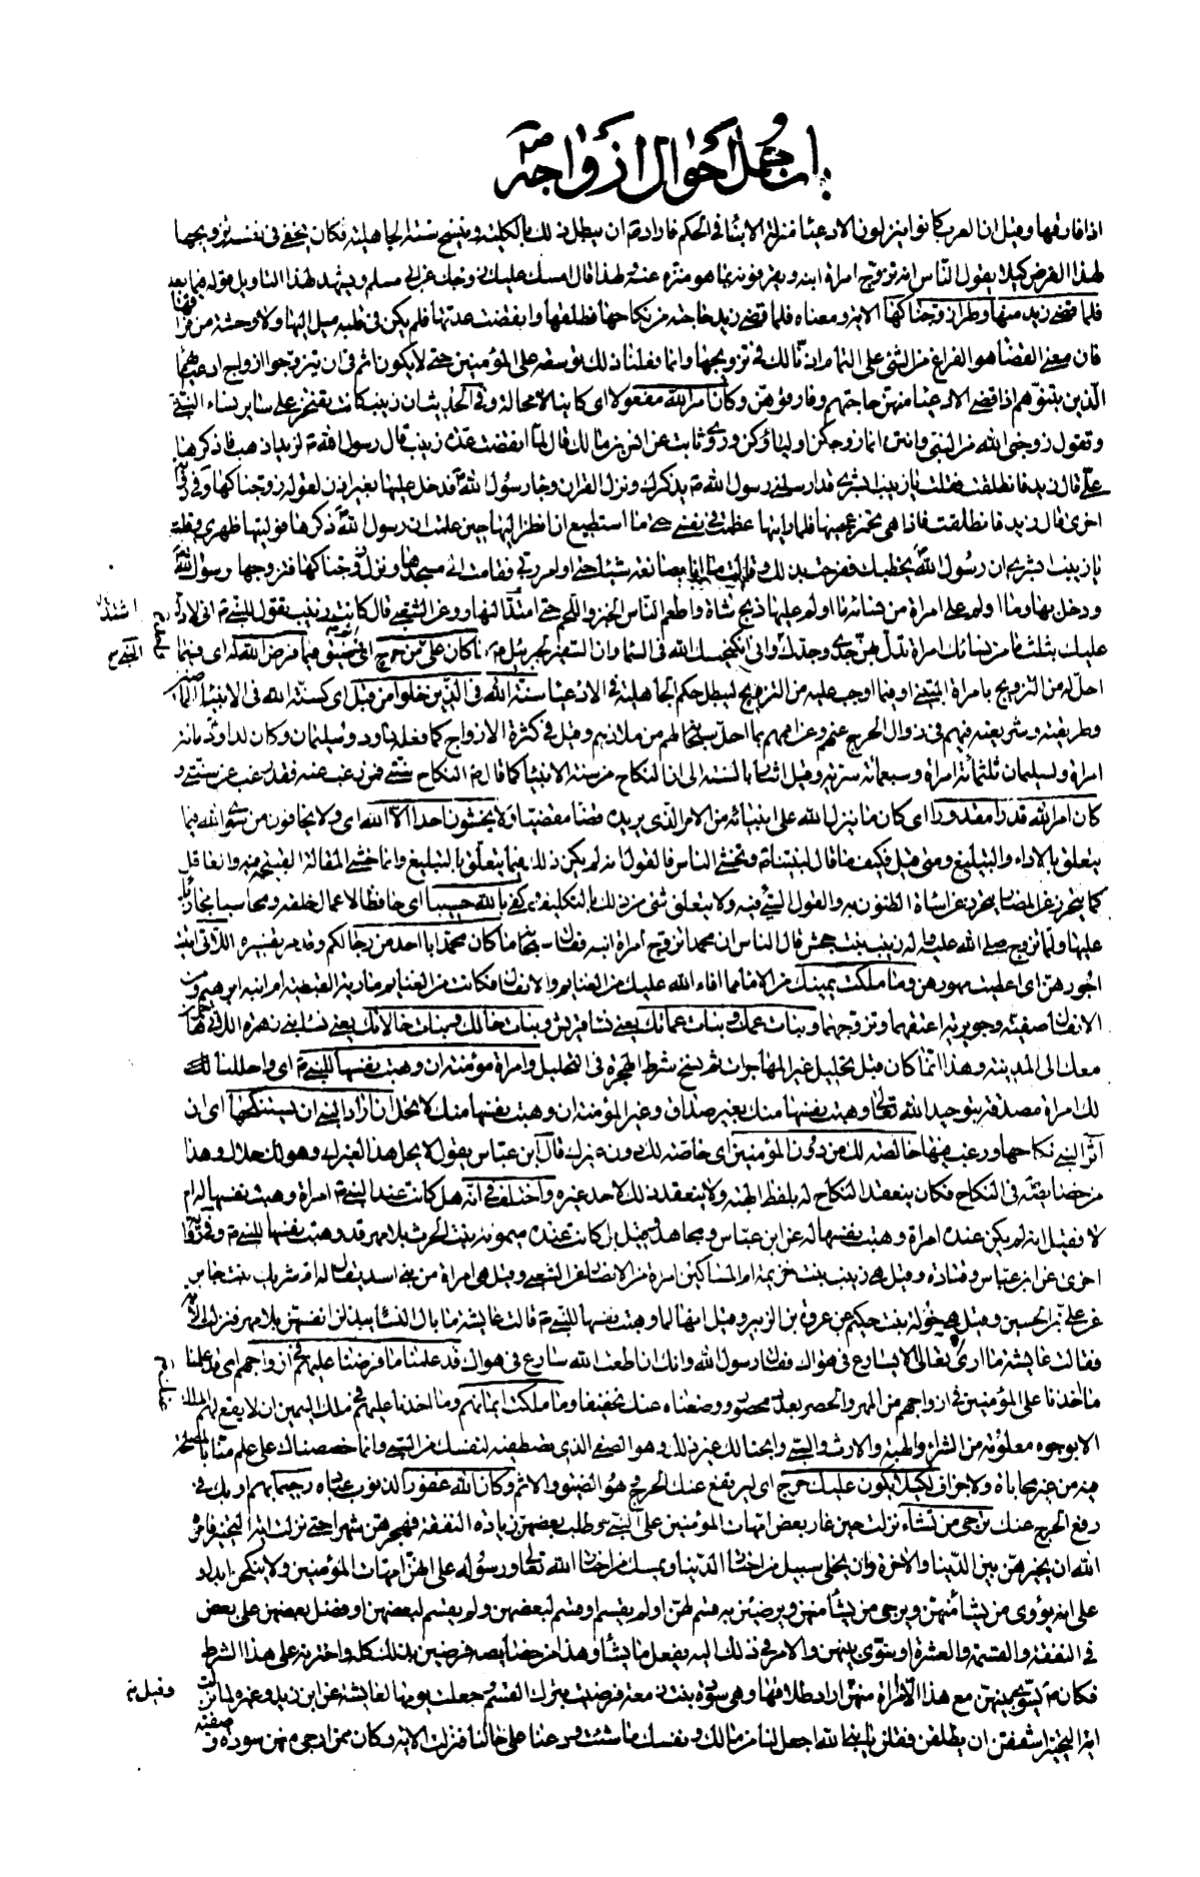 باب جمل احوال ازواجه ص
اذا فارقها وقيل ان العرب كانوا ينزلون الادعياء منزلة الابناء في الحكم فاراد ص ان يبطل ذلك بالكلية وينسخ سنة الجاهلية فكان يخفي في نفسه تزويجها
لهذا الغرض كيلا يقول الناس انه تزوج امراة ابنه ويقرفونه بما هو منزه عنه ولهذا قال امسك عليك زوجك عن ابي مسلم ويشهد لهذا التاويل قوله فيما بعد
فلما قضى زيد منها وطرا زوجناكها الاية ومعناه فلما قضى زيد حاجته من نكاحها فطلقها وانقضت عدتها فلم يكن في قلبه ميل اليها ولا وحشة من فراقها
فان معنى القضاء هو الفراغ من الشئ على التمام اذنا لك في تزويجها وانما فعلنا ذلك توسعة على المؤمنين حتى لا يكون اثم في ان يتزوجوا ازواج ادعيائهم
الذين تبنوهم اذا قضى الادعياء منهن حاجتهم وفارقوهن وكان امر الله مفعولا اي كائنا لا محالة وفي الحديث ان زينب كانت تفتخر على سائر نساء النبي
وتقول زوجني الله من النبي وانتن انما زوجكن اولياؤكن وروى ثابت عن انس بن مالك قال لما انقضت عدة زينب قال رسول الله ص لزيد اذهب فاذكرها
علي قال زيد فانطلقت فقلت يا زينب ابشري قد ارسلني رسول الله ص يذكرك ونزل القران وجاء رسول الله ص فدخل عليها بغير اذن لقوله زوجناكها وفي رواية
اخرى قال زيد فانطلقت فاذا هي تخمر عجينها فلما رايتها عظمت في نفسي حتى ما استطيع ان انظر اليها حين علمت ان رسول الله ص ذكرها فوليتها ظهري وقلت
يا زينب ابشري ان رسول الله ص يخطبك ففرحت بذلك وقالت ما انا بصانعة شيئا حتى اوامر ربي فقامت الى مسجدها ونزل زوجناكها فتزوجها رسول الله ص
ودخل بها وما اولم على امراة من نسائه ما اولم عليها ذبح شاة واطعم الناس الخبز واللحم حتى امتد النهار وعن الشعبي قال كانت زينب تقول للنبي ص اني لادل
عليك بثلث ما من نسائك امراة تدل بهن جدي وجدك واني انكحنيك الله في السماء وان السفير لجبرئيل ع ما كان على النبي من حرج اي اثم وضيق فيما فرض الله له اي فيما
احل له من التزويج بامراة المتبنى او فيما اوجب عليه من التزويج ليبطل حكم الجاهلية في الادعياء سنة الله في الذين خلوا من قبل اي كسنة الله في الانبياء الماضين
وطريقته وشريعته فيهم في زوال الحرج عنهم وعن اممهم بما احل سبحانه لهم من ملاذهم وقيل في كثرة الازواج كما فعله داود وسليمان وكان لداود مائة
امراة ولسليمان ثلثمائة امراة وسبعمائة سرية وقيل اشار بالسنة الى ان النكاح من سنة الانبياء كما قال ص النكاح سنتي فمن رغب عنه فقد رغب عن سنتي و
كان امر الله قدرا مقدورا اي كان ما ينزل الله على انبيائه من الامر الذي يريده قضاء مقضيا ولا يخشون احدا الا الله اي ولا يخافون من سوى الله فيما
يتعلق بالاداء والتبليغ ومتى قيل فكيف ما قال لنبينا ص وتخشى الناس فالقول انه لم يكن ذلك فيما يتعلق بالتبليغ وانما خشي المقالة القبيحة فيه والعاقل
كما يتحرز عن المضار يتحرز عن اساءة الظنون به والقول السيئ فيه ولا يتعلق شئ من ذلك بالتكليف وكفى بالله حسيبا اي حافظا لاعمال خلقه ومحاسبا مجازيا
عليها ولما تزوج صلى الله عليه واله زينب بنت جحش قال الناس ان محمدا تزوج امراة ابنه فقال سبحانه ما كان محمد ابا احد من رجالكم وقد مر تفسيره اللاتي اتيت
اجورهن اي اعطيت مهورهن وما ملكت يمينك من الاماء مما افاء الله عليك من الغنائم والانفال فكانت من الغنائم مارية القبطية ام ابنه ابرهيم ومن
الانفال صفية وجويرية اعتقهما وتزوجهما وبنات عمك وبنات عماتك يعني نساء قريش وبنات خالك وبنات خالاتك يعني نساء بني زهرة اللاتي هاجرن
معك الى المدينة وهذا انما كان قبل تحليل غير المهاجرات ثم نسخ شرط الهجرة في التحليل وامراة مؤمنة ان وهبت نفسها للنبي ص اي واحللنا
لك امراة مصدقة بتوحيد الله تعالى وهبت نفسها منك بغير صداق وغير المؤمنة ان وهبت نفسها منك لا تحل ان اراد النبي ان يستنكحها اي ان
آثر النبي نكاحها ورغب فيها خالصة لك من دون المؤمنين اي خاصة لك دون غيرك قال ابن عباس يقول لا يحل هذا لغيرك وهو لك حلال وهذا
من خصائصه في النكاح فكان ينعقد النكاح له بلفظ الهبة ولا ينعقد ذلك لاحد غيره واختلف في انه هل كانت عند النبي ص امراة وهبت نفسها له ام
لا فقيل انه لم يكن عنده امراة وهبت نفسها له عن ابن عباس ومجاهد وقيل بل كانت عنده ميمونة بنت الحرث بلا مهر قد وهبت نفسها للنبي ص وفي رواية
اخرى عن ابن عباس وقتادة وقيل هي زينب بنت خزيمة ام المساكين امراة من الانصار عن الشعبي وقيل هي امراة من بني اسد يقال لها ام شريك بنت جابر
عن علي بن الحسين وقيل هي خولة بنت حكيم عن عروة بن الزبير وقيل انها لما وهبت نفسها للنبي ص قالت عايشة ما بال النساء يبذلن انفسهن بلا مهر فنزلت الاية
فقالت عايشة ما ارى الله تعالى الا يسارع في هواك فقال رسول الله وانك ان اطعت الله سارع في هواك قد علمنا ما فرضنا عليهم في ازواجهم اي قد علمنا
ما اخذنا على المؤمنين في ازواجهم من المهر والحصر بعدد محصور ووضعناه عنك تخفيفا وما ملكت ايمانهم وما اخذنا عليهم في ملك اليمين ان لا يقع لهم الملك
الا بوجوه معلومة من الشراء والهبة والارث والسبي وابحنا لك غير ذلك وهو الصفي الذي تصطفيه لنفسك من السبي وانما خصصناك على علم منا بالمصلحة
فيه من غير محاباة ولا جزاف لكيلا يكون عليك حرج اي ليرتفع عنك الحرج وهو الضيق والاثم وكان الله غفورا لذنوب عباده رحيما بهم او بك في
رفع الحرج عنك ترجي من تشاء نزلت حين غار بعض امهات المؤمنين على النبي ص وطلب بعضهن زيادة النفقة فهجرهن شهرا حتى نزلت اية التخيير فامره
الله ان يخيرهن بين الدنيا والاخرة وان يخلي سبيل من اختار الدنيا ويمسك من اختار الله تعالى ورسوله على انهن امهات المؤمنين ولا ينكحن ابدا و
على انه يؤوى من يشاء منهن ويرجي من يشاء منهن ويرضين به قسم لهن او لم يقسم او قسم لبعضهن ولم يقسم لبعضهن او فضل بعضهن على بعض
في النفقة والقسمة والعشرة او سوى بينهن والامر في ذلك اليه يفعل ما يشاء وهذا من خصائصه فرضين بذلك كله واخترنه على هذا الشرط
فكان ص يسوي بينهن مع هذا الا امراة منهن اراد طلاقها وهي سودة بنت زمعة فرضيت بترك القسم وجعلت يومها لعايشة عن ابن زيد وغيره وقيل لما نزلت
اية التخيير اشفقن ان يطلقن فقلن يا نبي الله اجعل لنا من مالك ونفسك ما شئت ودعنا على حالنا فنزلت الاية وكان ممن ارجى منهن سودة وصفية